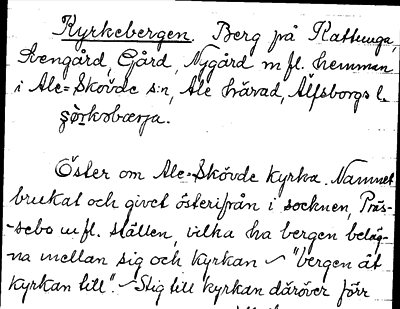 Kyrkebergen. Berg på Kattunga,
Svengård, Gård, Nygård m fl. hemman
i Ale-Skövde s:n, Ale härad, Älfsborgs l.
Öster om Ale-Skövde kyrka. Namnet
brukat och givet österifrån i socknen, Präs-
-sebo m. fl. ställen, vilka ha bergen beläg-
na mellan sig och kyrkan ~ "bergen åt
kyrkan till". ~ Stig till kyrkan däröver förr